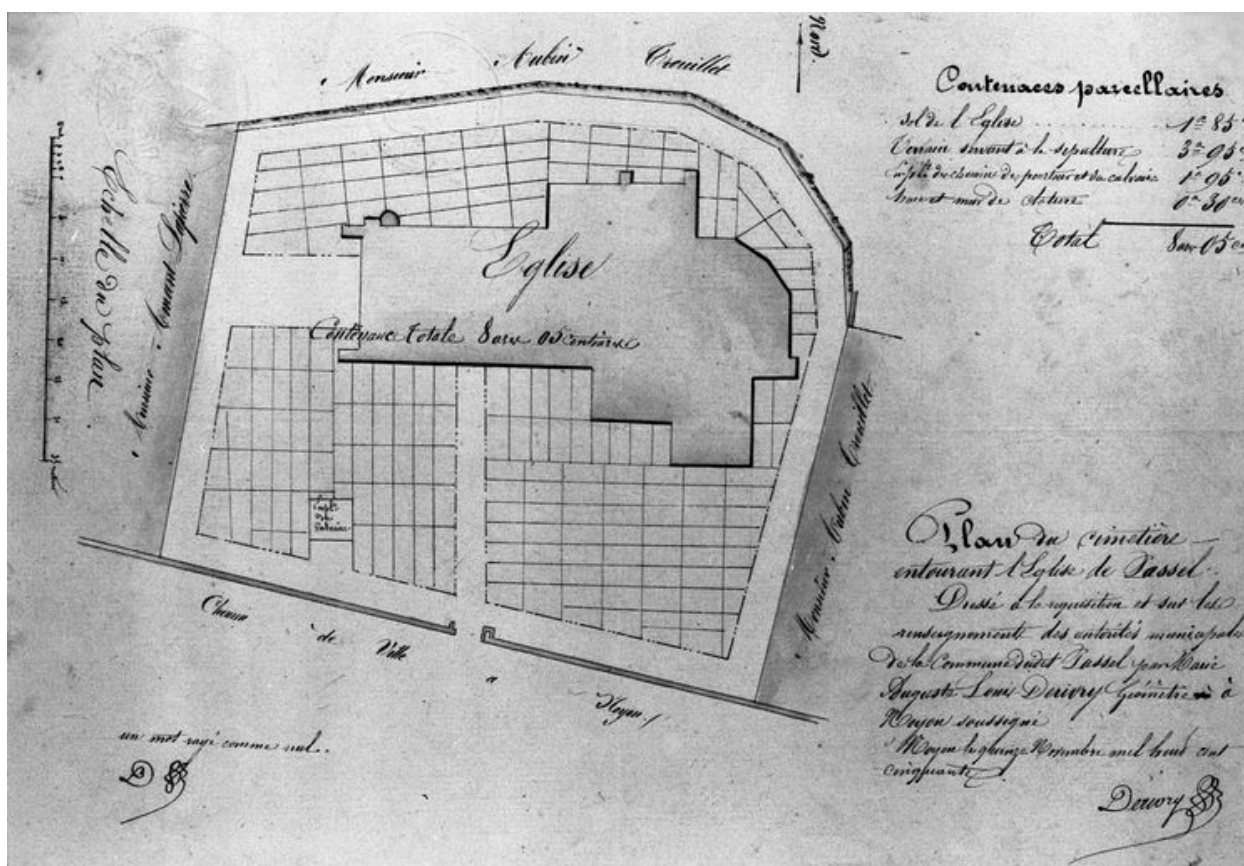 Nord.
Monsieur Aubin Trouillet
Contenances parcellaires
Sol de l'Eglise 1a 85c
Terrain servant à la sépulture 3a 95c
Emplt du chemin de pourtour et du calvaire 1a 95c
haie et mur de clôture 0a 30ces
Total 8ares 05ces
Echelle du plan
Monsieur Amant
Eglise
Contenance totale 8 ares 05 centiares
Emplt
du
Calvaire
Monsieur Aubin Trouillet
Chemin de Ville a Noyon
Plan du cimetière
entourant l'Eglise de Passel.
Dressé à la requisition et sur les
renseignements des autorités municipales
de la Commune dudit Passel par Marie
Auguste Louis Derivry Géomètre à
Noyon soussigné
Noyon le quinze Novembre mil huit cent
cinquante
Derivry
un mot rayé comme nul.
D